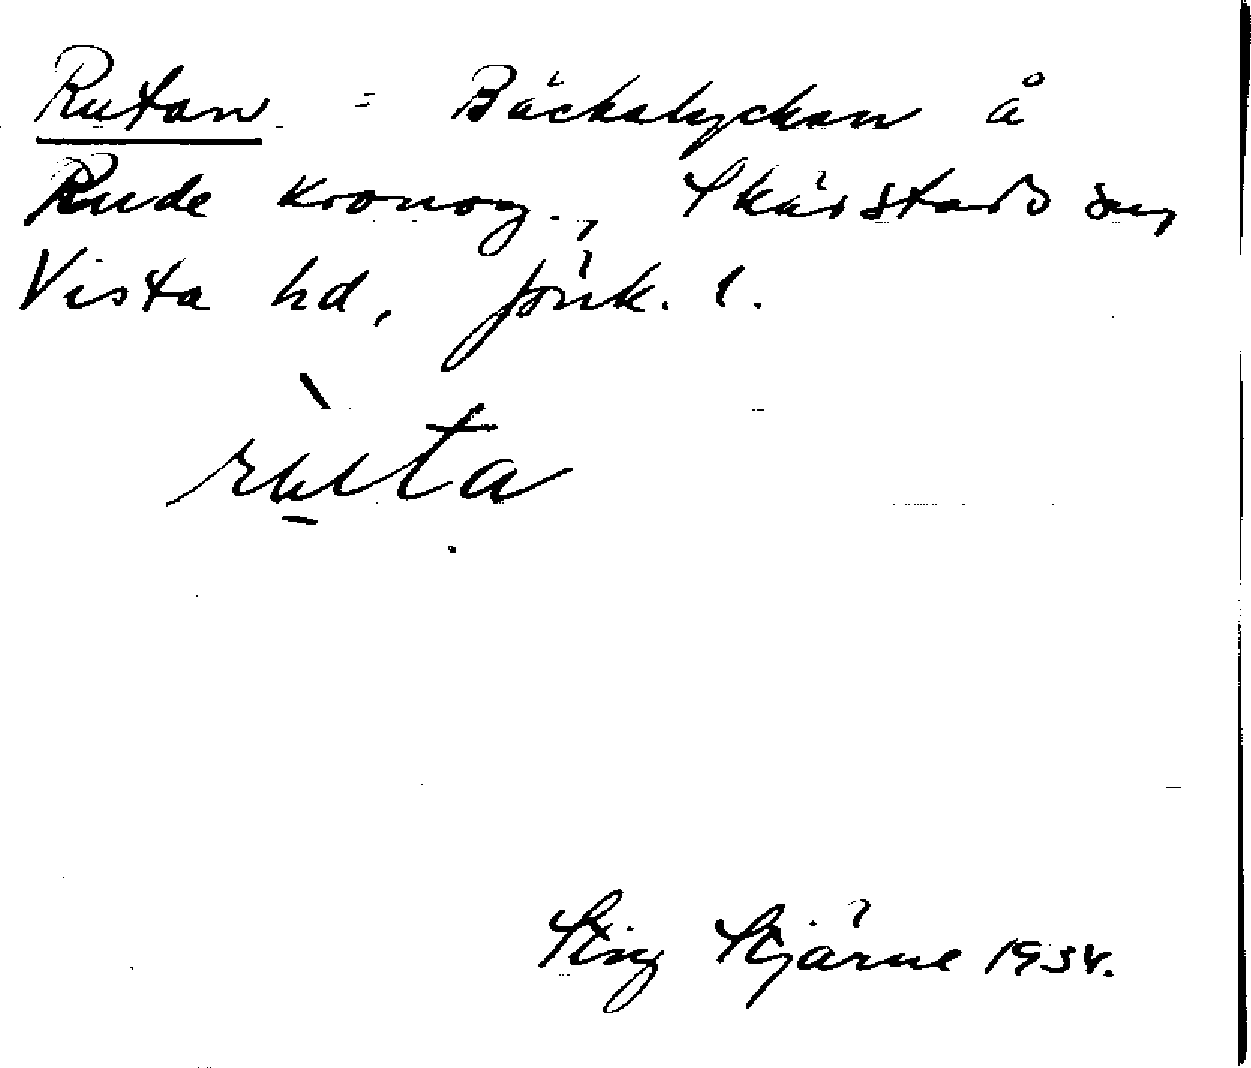 Rutan = Bäckalyckan å
Rude kronog., Skärstads sn,
Vista hd, Jönk. l.
rùta
Stig Stjärne 1934.